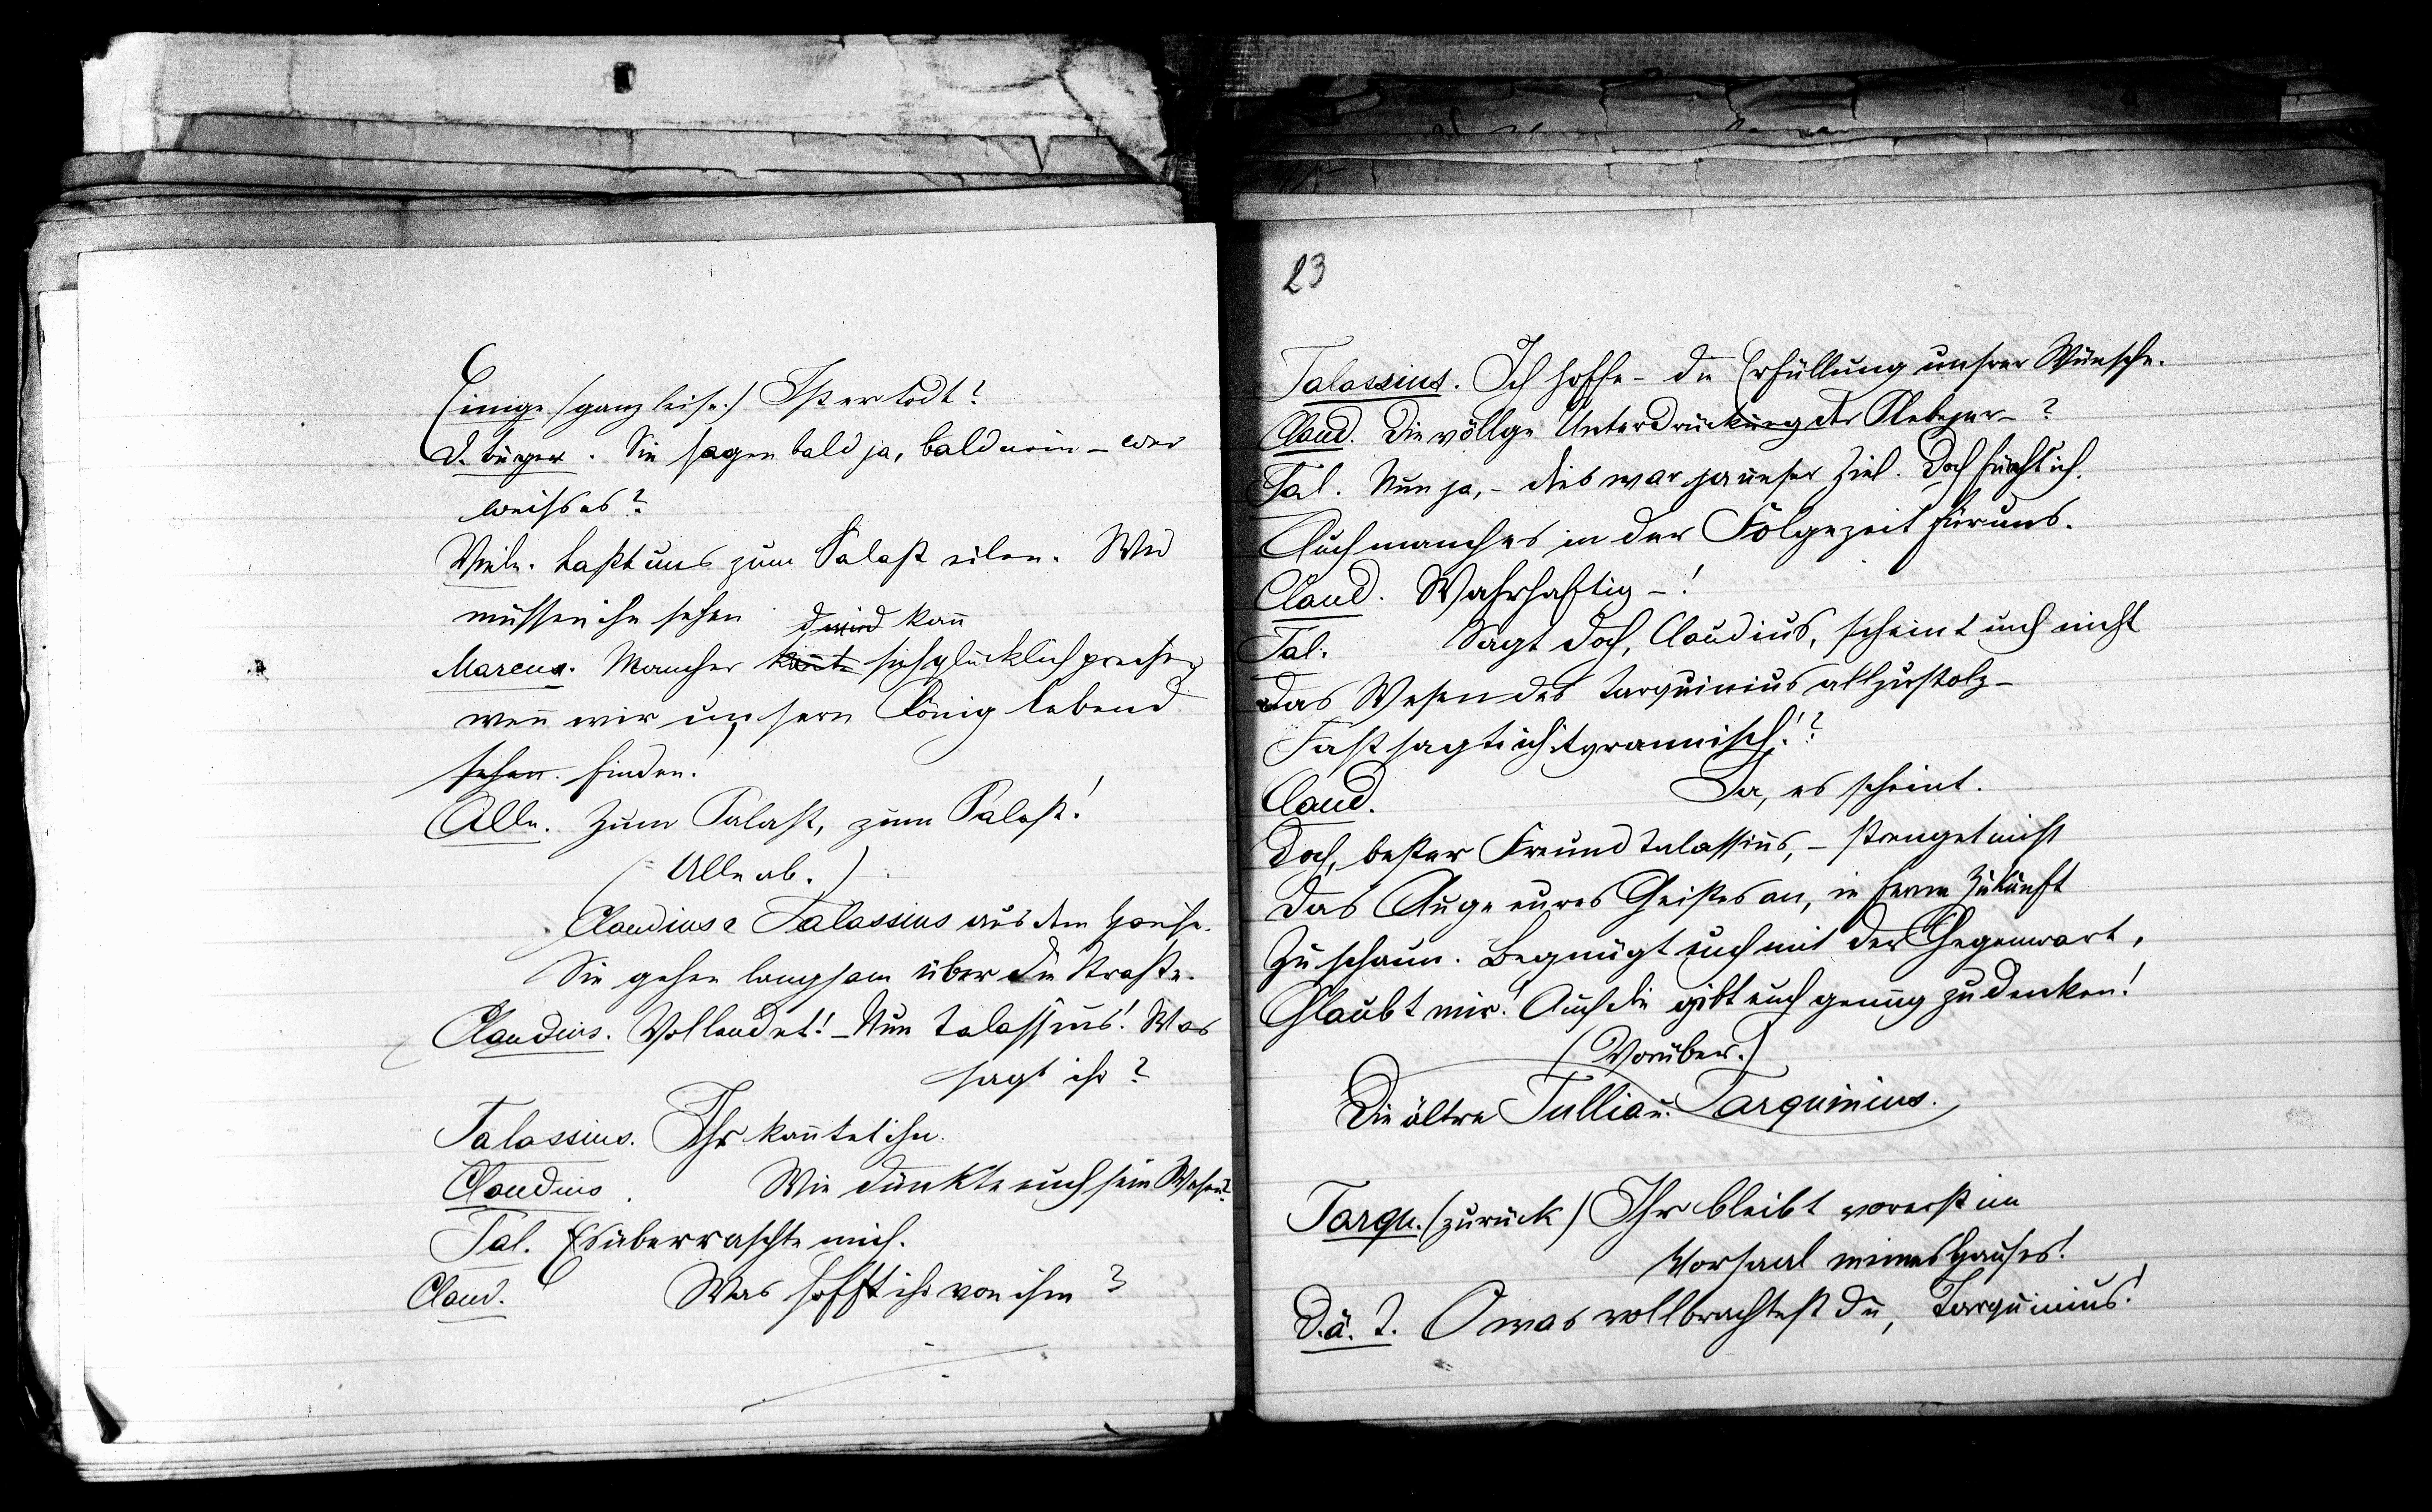 Einige (ganz leise.) Ist er todt?
D. Bürger. Sie sagen bald ja, bald nein – wer
weiss es?
Viele. Lasst uns zum Palast eilen. Wir
müssen ihn sehen
d wird kan̄
Marcus. Mancher kan̄te sich glücklich preisen,
wen̄ wir unsern König lebend
sehen. finden!
Alle. Zum Palast, zum Palast!
(Alle ab.)
Claudius & Talassius aus dem Hause.
Sie gehen langsam über die Strasse.
Claudius. Vollendet! – Nun Talassius! Was
sagt ihr?
Talassius. Ihr kan̄tet ihn.
Claudius. Wie dünkte euch sein Wesen?
Tal. Es überraschte mich.
Claud. Was hofft ihr von ihm?
23
Talassius. Ich hoffe – die Erfüllung unsrer Wünsche.
Claud. Die völlge Unterdrückung der Plebejer – ?
Tal. Nun ja, – dies war ja unser Ziel. Doch fürcht ich.
Auch manches in der Folgezeit für uns.
Claud. Wahrhaftig – !
Tal. Sagt doch, Claudius, scheint euch nicht
Das Wesen des Tarquinius allzustolz –
Fast sagte ich tyrannisch!?
Claud. Ja, es scheint.
Doch, bester Freund Talassius, – strenget nicht
Das Auge eures Geistes an, in ferne Zukunft
Zu schaun. Begnügt euch mit der Gegenwart,
Glaubt mir! Auch die gibt euch genug zu denken!
(Vorüber.)
Die ältre Tullia u. Tarquinius.
Tarqu. (zurück) Ihr bleibt vorerst im
Vorsaal meines Hauses!
D. ä. T. O was vollbrachtest du, Tarquinius!